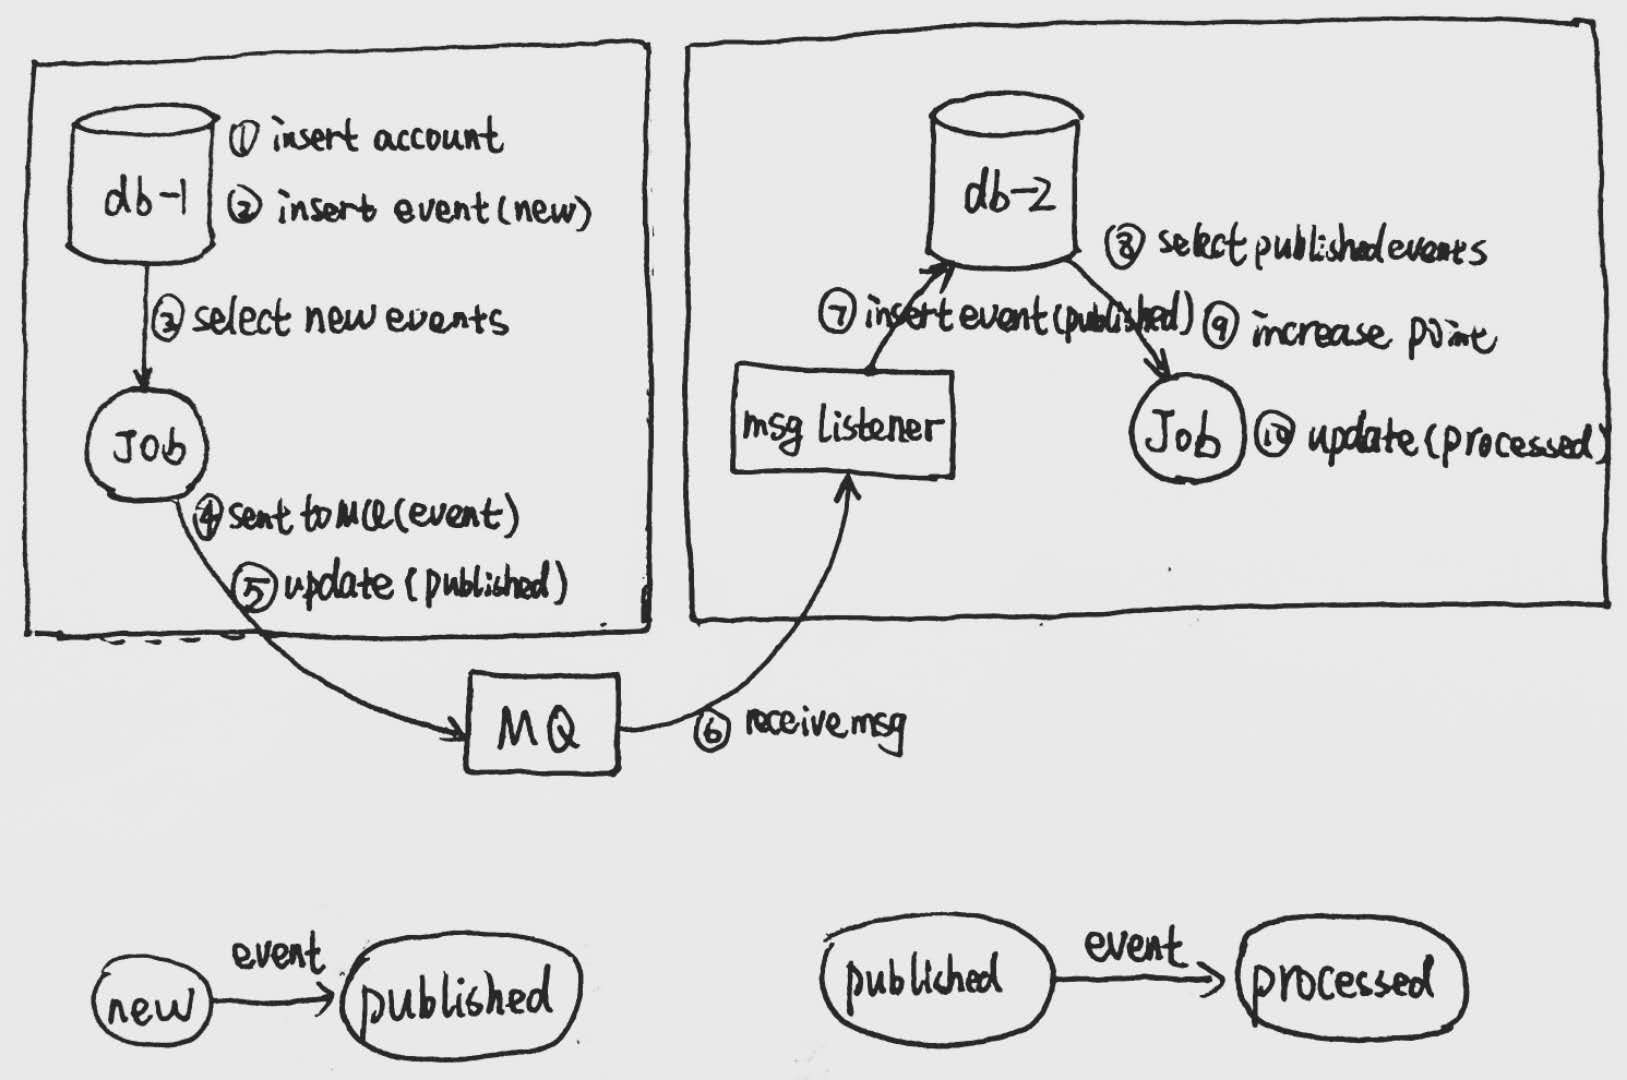 db-1
① insert account
② insert event(new)
③ select new events
Job
④ sent to MQ(event)
⑤ update(published)
MQ
⑥ receive msg
msg listener
⑦ insert event(published)
db-2
⑧ select published events
⑨ increase point
Job
⑩ update(processed)
new
event
published
published
event
processed